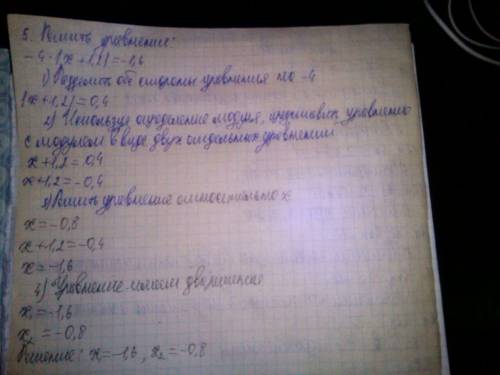 5. Решить уравнение:
-4·|x+1,2|=-1,6
1) Разделить обе стороны уравнения на -4
|x+1,2|=0,4
2) Используя определение модуля, представить уравнение
с модулем в виде двух отдельных уравнений
x+1,2=0,4
x+1,2=-0,4
3) Решить уравнение относительно x
x=-0,8
x+1,2=-0,4
x=-1,6
4) Уравнение имеет два решения
x₁=-1,6
x₂=-0,8
Решение: x=-1,6, x₂=-0,8